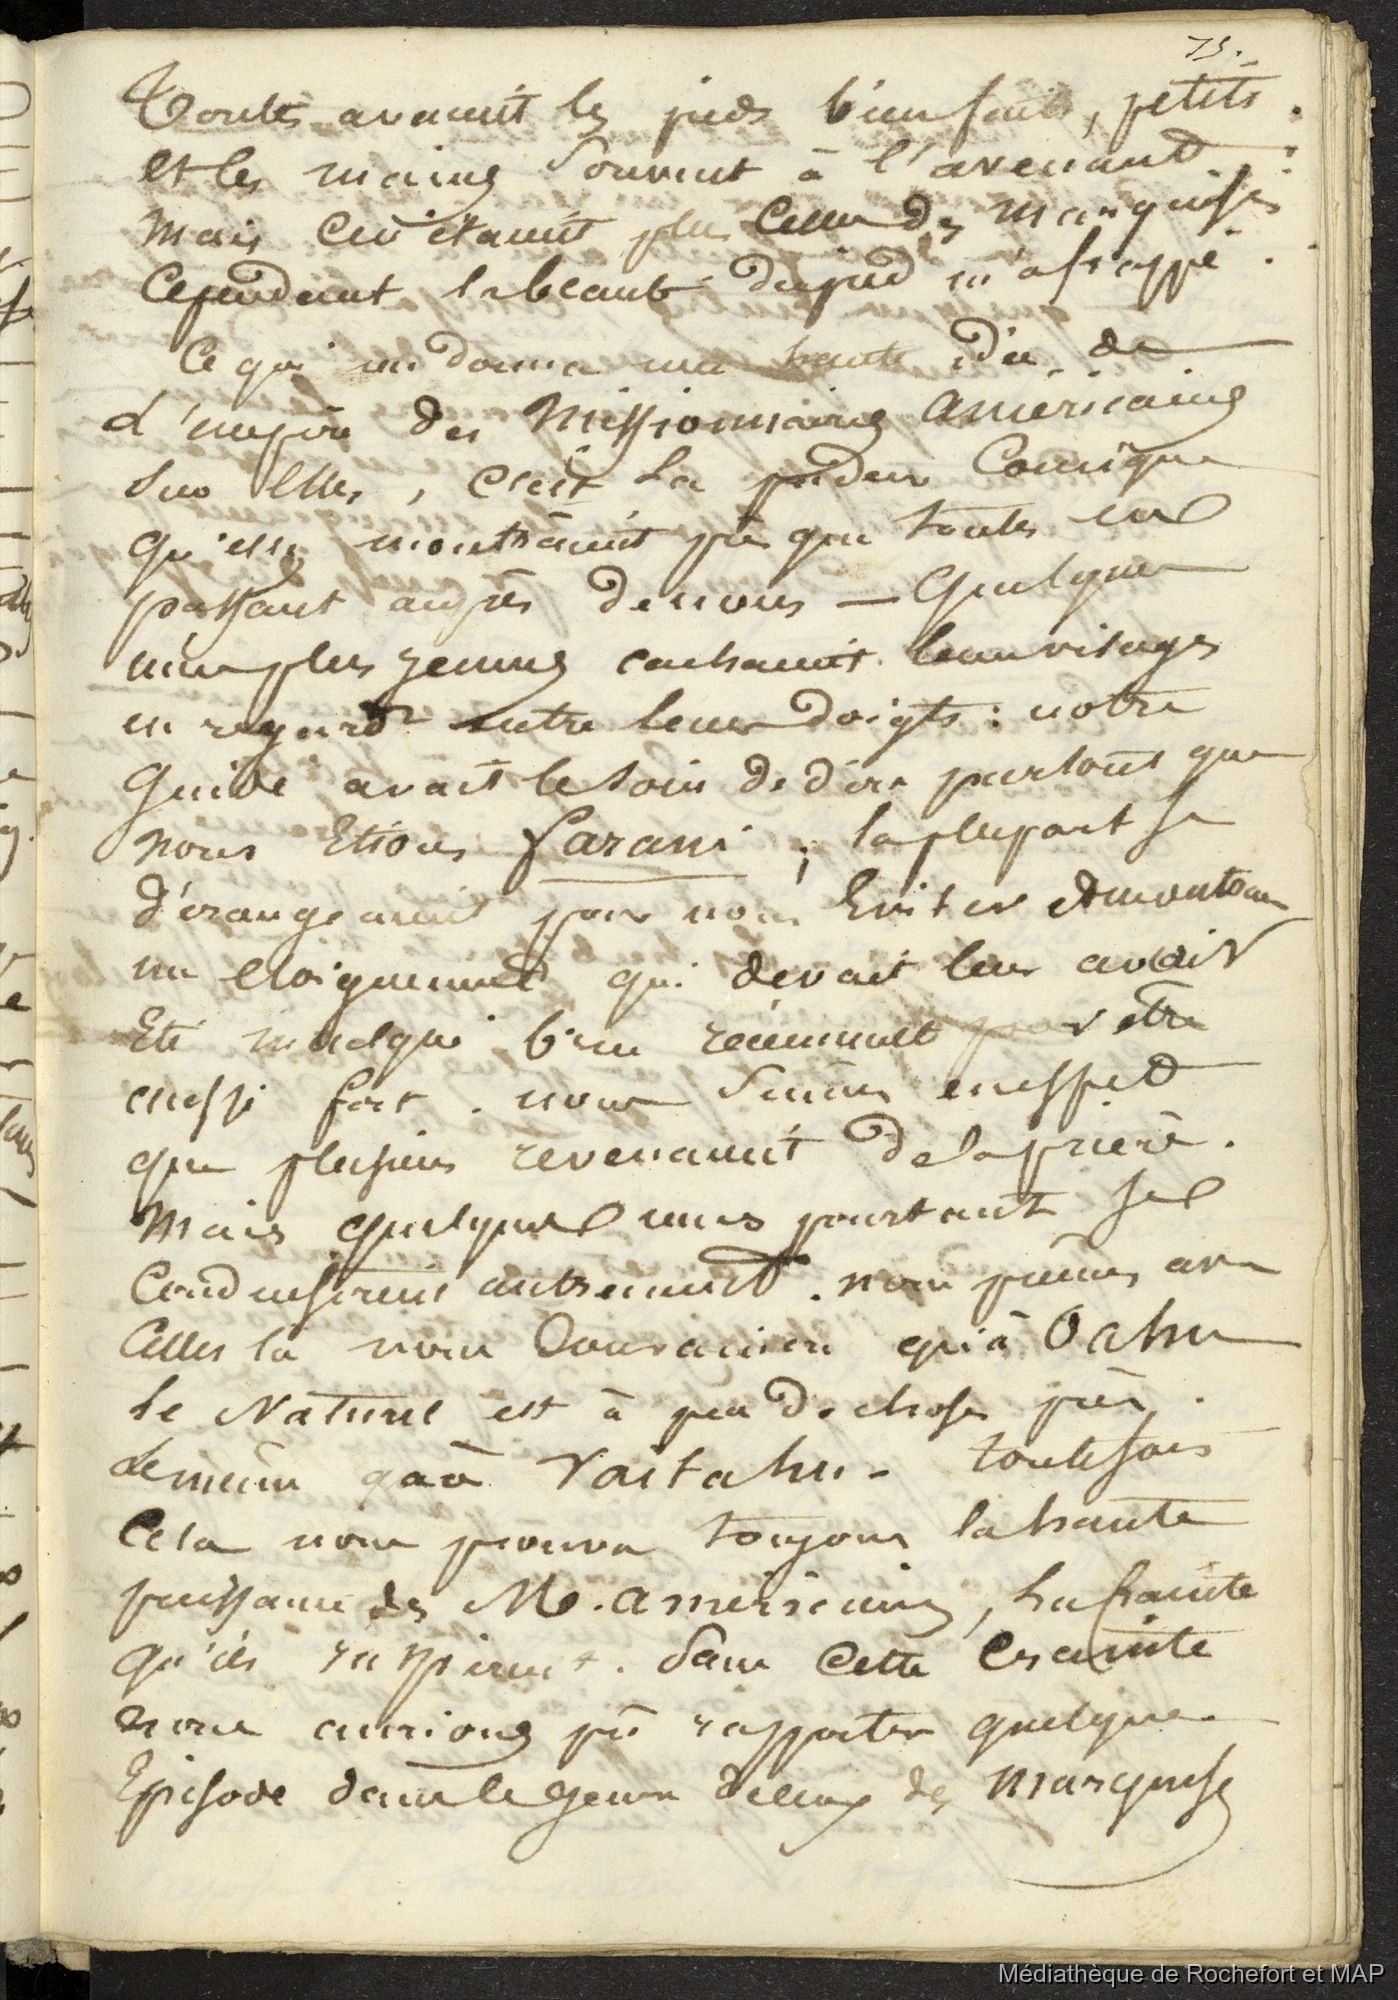 75.
Toutes avaient les pieds bien faits, petits.
et les mains souvent à l'avenant :
mais ce n'étaient plus celles des marquises
Cependant la beauté du pied m'a frappé.
Ce qui me donna une haute idée de
l'empire des Missionnaires américains
sur elles, c'est la pudeur comique
qu'elles montraient presque toutes en
passant auprès de nous — Quelques
unes plus jeunes cachaient leurs visages
en regardt entre leurs doigts : notre
Guide avait le soin de dire partout que
nous Etions Farani ; la plupart se
dérangeaient pour nous Eviter et montraient
un eloignement qui devait leur avoir
Eté inculqué bien récemment pour être
aussi fort. nous sumes en effet
que plusieurs revenaient de la prière.
Mais quelques unes pourtant se
conduisirent autrement. nous pumes avec
celles la nous convaincre qu'à Oahu
le Naturel est à peu de choses près
le même qu'à Vaitahu - toutefois
Cela nous prouva toujours la haute
puissance des M. américains, la crainte
qu'ils inspirent. Sans cette crainte
nous aurions pu rapporter quelque
Episode dans le genre de ceux des marquises
Médiathèque de Rochefort et MAP